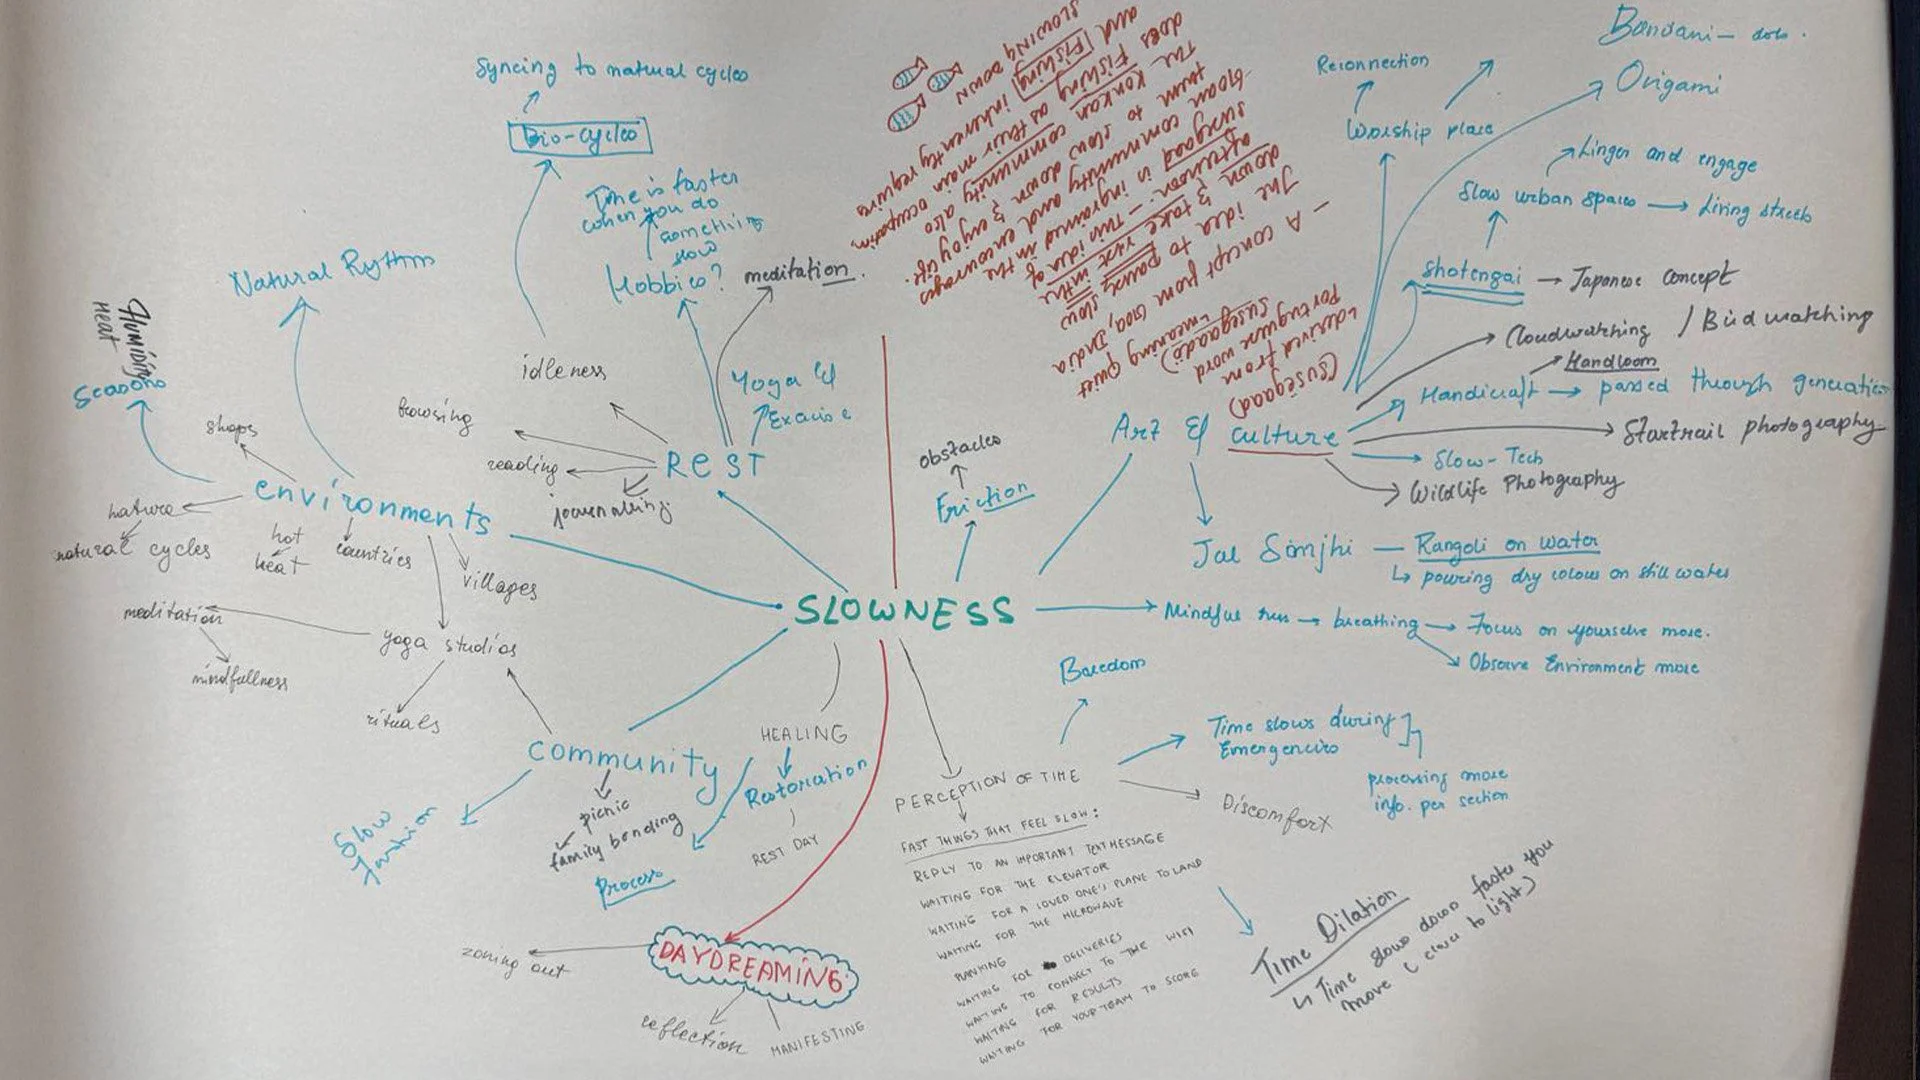 Syncing to natural cycles
Bio-cycles
Time is faster
when you do
something
slow
Hobbies?
meditation.
Natural Rythm
Humidity
Heat
Seasons
idleness
Yoga &
Exercise
browsing
shops
REST
reading
journaling
environments
nature
natural cycles
hot
heat
countries
villages
meditation
mindfullness
yoga studios
rituals
obstacles
Friction
SLOWNESS
(susegaad)
↳ derived from
Portuguese word
(Susegaado)
↳ meaning quiet
– A concept from Goa, India
The idea to pause, slow
down & take rest in the
afternoon. – This idea of
susegaad is ingrained in the
Goan community and encourages
them to slow down & enjoy life.
The Konkan community also
does Fishing as their main occupation,
and Fishing inherently requires
slowing down
Reconnection
Worship place
Bandani – dots.
Origami
Linger and engage
Slow urban spaces → Living streets
Shotengai → Japanese concept
Cloudwatching / Birdwatching
Handloom
Handicraft → passed through generation
Startrail photography
Art & culture
Slow-Tech
Wildlife Photography
Jal Sanjhi — Rangoli on water
↳ pouring dry colour on still water
Mindful run → breathing → Focus on yourselve more.
Observe Environment more
Boredom
Time slows during
Emergencies
processing more
info. per section
Discomfort
PERCEPTION OF TIME
FAST THINGS THAT FEEL SLOW:
REPLY TO AN IMPORTANT TEXT MESSAGE
WAITING FOR THE ELEVATOR
WAITING FOR A LOVED ONE'S PLANE TO LAND
WAITING FOR THE MICROWAVE
PLANKING
WAITING FOR DELIVERIES
WAITING TO CONNECT TO THE WIFI
WAITING FOR RESULTS
WAITING FOR YOUR TEAM TO SCORE
Time Dilation
↳ Time slows down faster you
move (closer to light)
HEALING
Restoration
REST DAY
community
picnic
family bonding
Process
Slow
Fashion
DAYDREAMING
zoning out
reflection
MANIFESTING